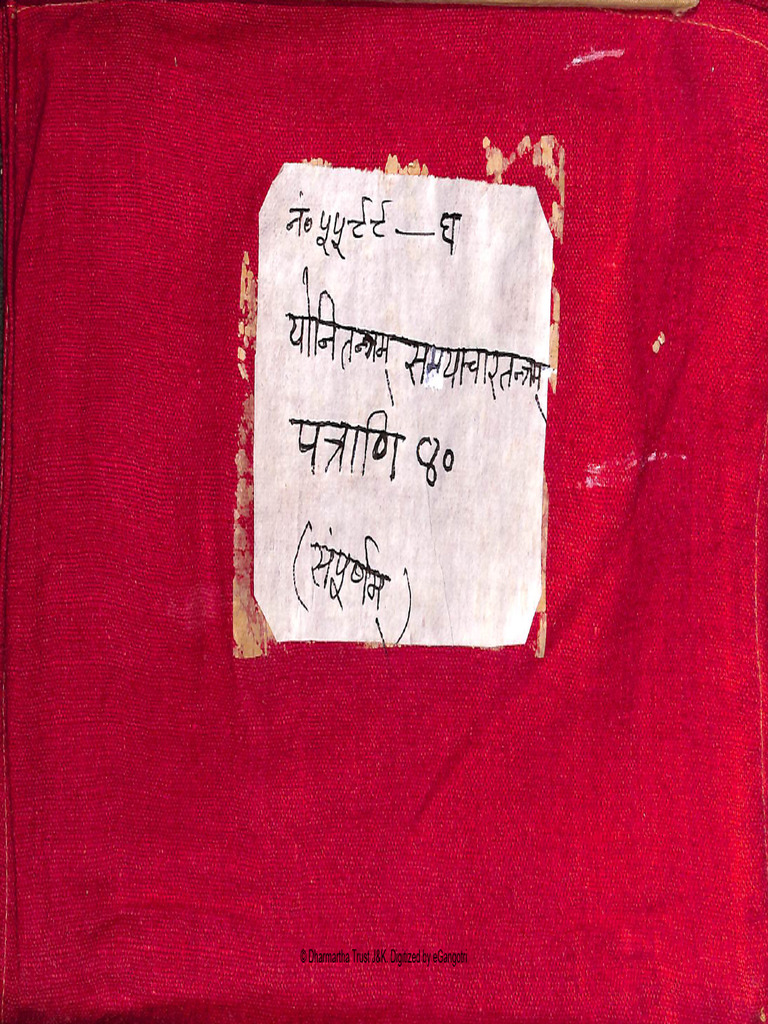 नं० ५५९९ — घ
योनितन्त्रम् समयाचारतन्त्रम्
पत्राणि ४०
(संपूर्णम्)
© Dharmartha Trust J&K. Digitized by eGangotri